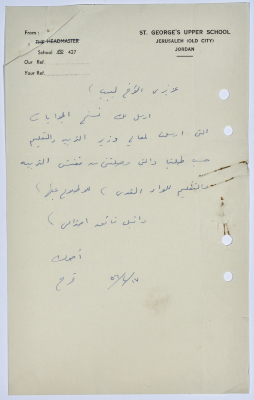 From:
THE HEADMASTER
School 427
Our Ref.
Your Ref.
ST. GEORGE'S UPPER SCHOOL
JERUSALEM (OLD CITY)
JORDAN
عزيزي الأخ لبيب
ارسل لك نسخ
التي ارسل لمعالي وزير التربية والتعليم
حسب طلبنا والتي وصلتني من مفتش التربية
والتعليم للواء القدس
واقبل فائق احترامي
أخوك
فرح